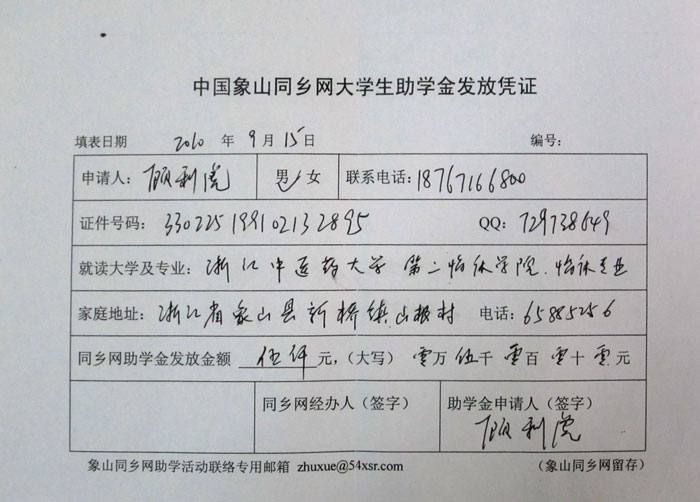 中国象山同乡网大学生助学金发放凭证
填表日期 2010 年 9 月 15 日 编号：
申请人：顾利虎 男√女 联系电话：18767166800
证件号码：330225199102132895 QQ：729738649
就读大学及专业：浙江中医药大学 第二临床学院、临床专业
家庭地址：浙江省象山县新桥镇山根村 电话：65885256
同乡网助学金发放金额 伍仟 元，（大写） 零万 伍千 零百 零十 零元
同乡网经办人（签字） 助学金申请人（签字）
顾利虎
象山同乡网助学活动联络专用邮箱 zhuxue@54xsr.com （象山同乡网留存）